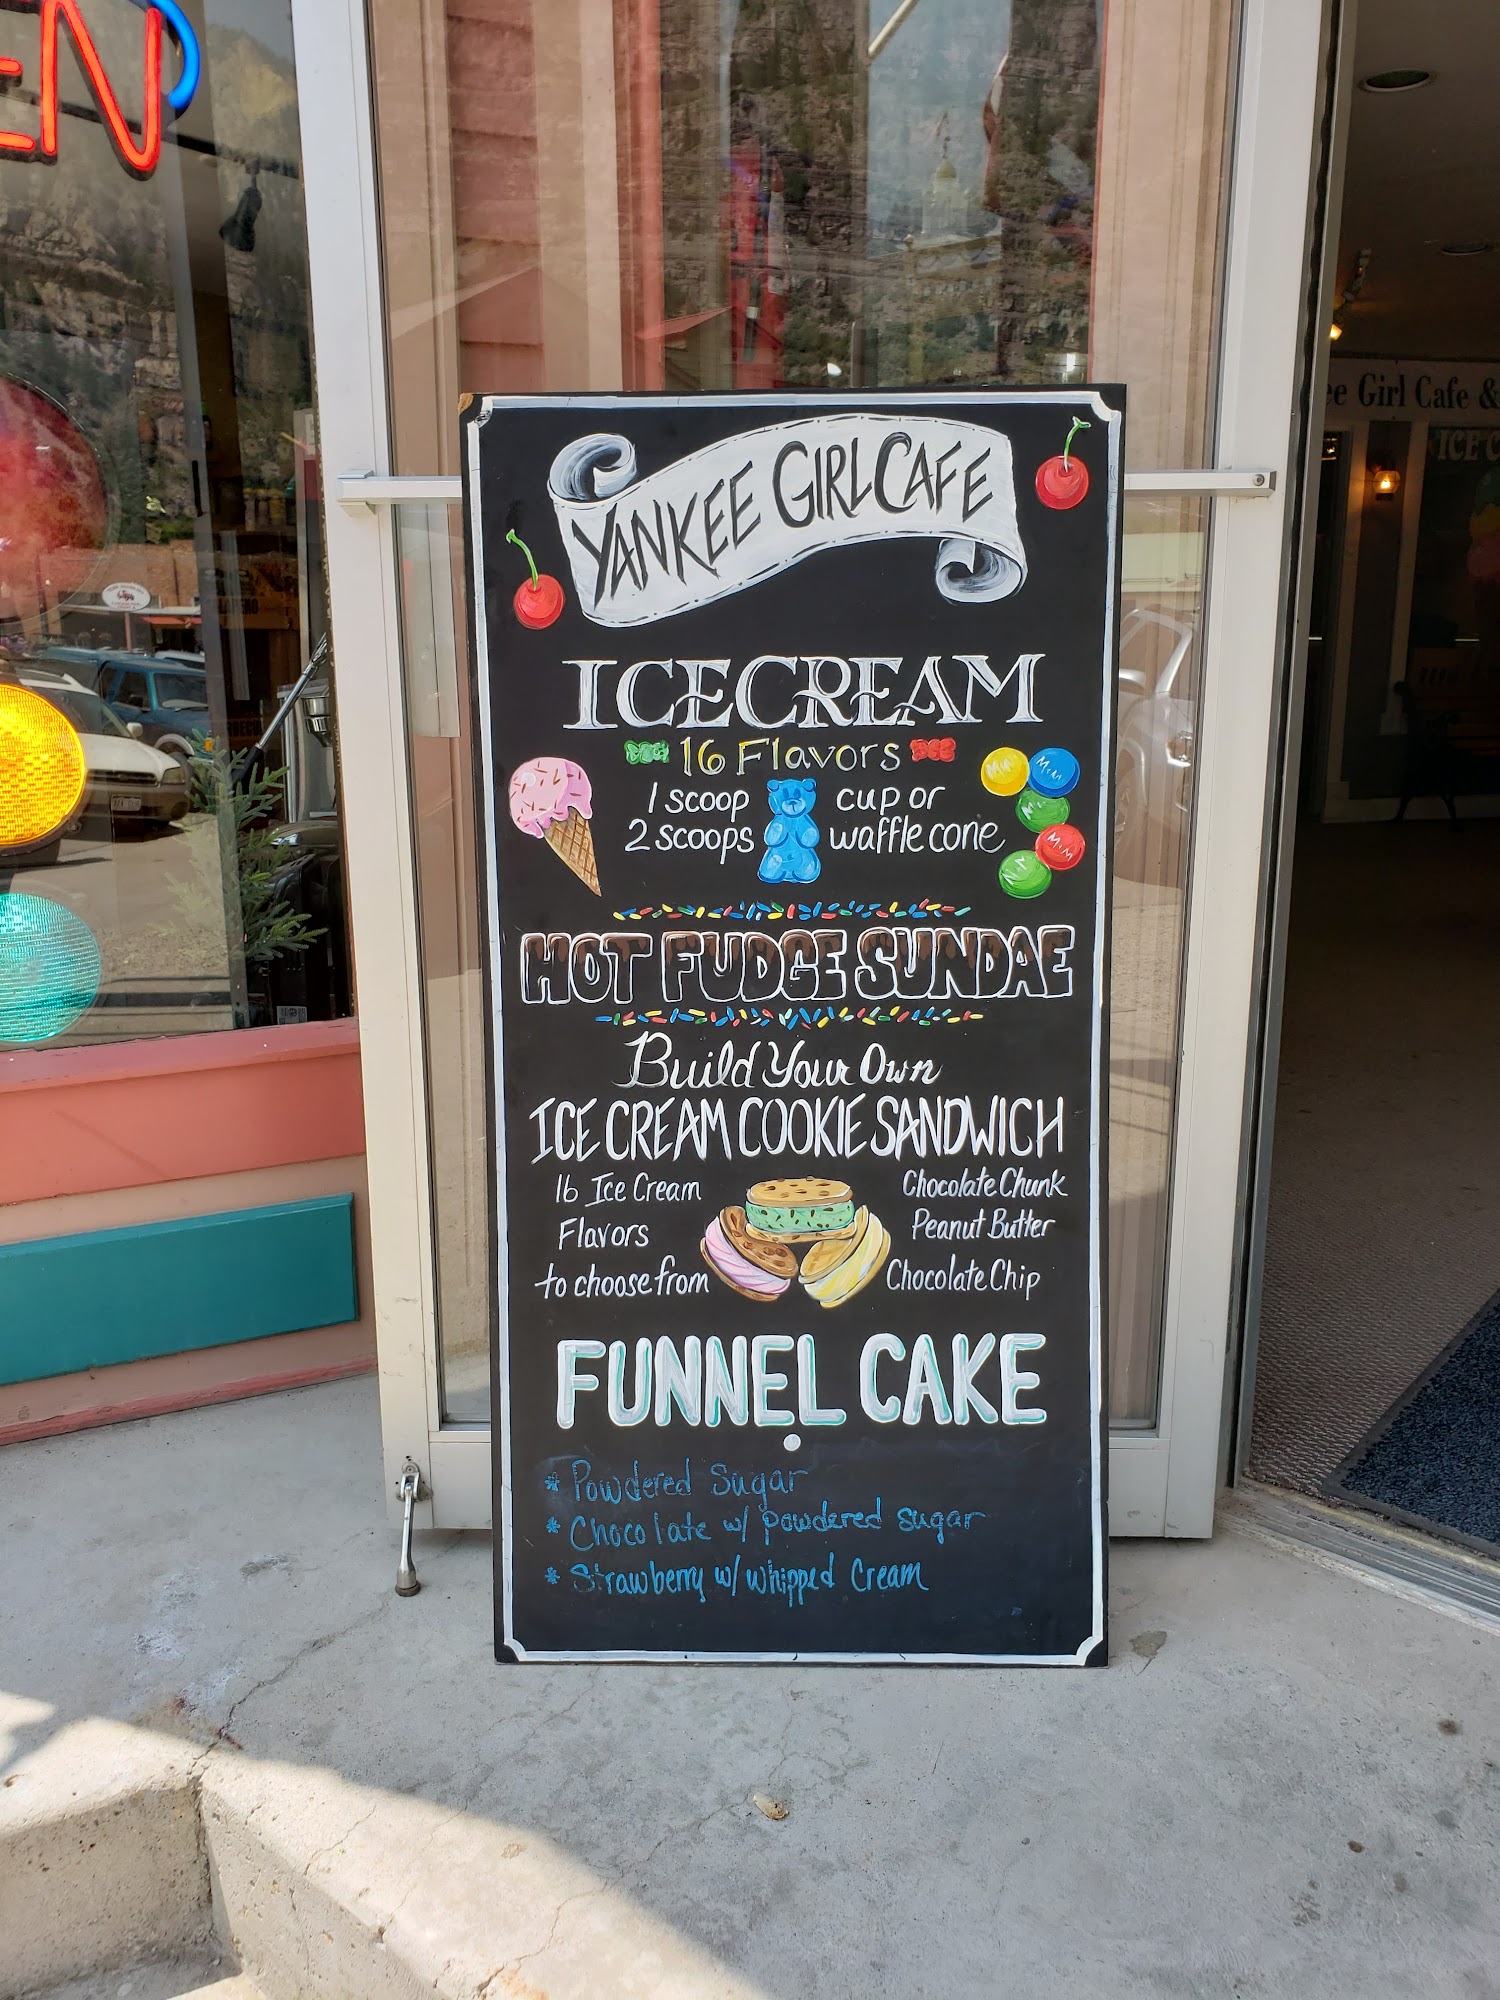 EN
YANKEE GIRL CAFE
ICE CREAM
16 Flavors
1 scoop cup or
2 scoops waffle cone
M&M
M&M
M&M
M&M
M&M
HOT FUDGE SUNDAE
Build Your Own
ICE CREAM COOKIE SANDWICH
16 Ice Cream
Flavors
to choose from
Chocolate Chunk
Peanut Butter
Chocolate Chip
FUNNEL CAKE
* Powdered Sugar
* Chocolate w/ powdered sugar
* Strawberry w/ whipped Cream
ee Girl Cafe &
ICE C